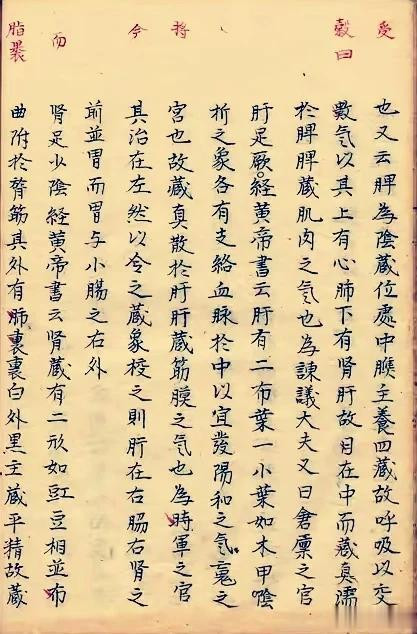 受
也又云脾為陰藏位處中膲主養四藏故呼吸以交
穀曰
數气以其上有心肺下有肾肝故目在中而藏真濡
於脾脾藏肌肉之气也為諫議大夫又曰倉廪之官
肝足厥。経黄帝書云肝有二布葉一小葉如木甲陰
折之象各有支絡血脉於中以宜發陽和之气䰟之
将
宫也故藏真散於肝肝藏筋膜之气也為時軍之官
今
其治在左然以令之藏象校之則肝在右脇右肾之
前並胃而胃与小腸之右外
而
肾足少陰経黄帝書云肾藏有二形如豇豆相並布
脂裹
曲附於膂筋其外有肺裏裏白外黑主藏平精故藏